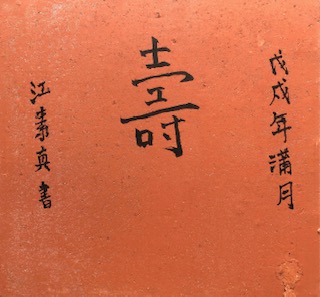 戊戌年满月
壽
江素真書